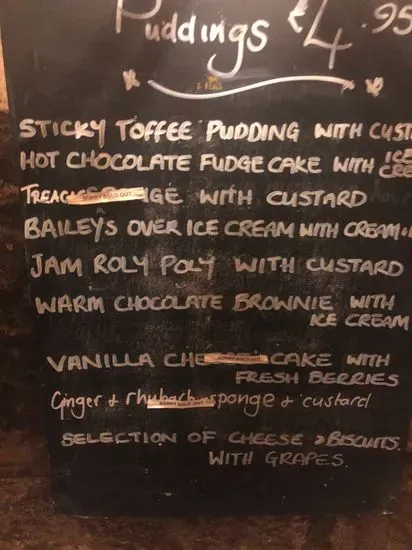 Puddings £4.95
STICKY TOFFEE PUDDING WITH CUST
HOT CHOCOLATE FUDGE CAKE WITH ICE CRE
TREAC SORRY SOLD OUT GE WITH CUSTARD
BAILEYS OVER ICE CREAM WITH CREAM
JAM ROLY POLY WITH CUSTARD
WARM CHOCOLATE BROWNIE WITH
ICE CREAM
VANILLA CHE SORRY SOLD OUT CAKE WITH
FRESH BERRIES
Ginger & rhubarb sponge & custard
SORRY SOLD OUT
SELECTION OF CHEESE & BISCUITS
WITH GRAPES